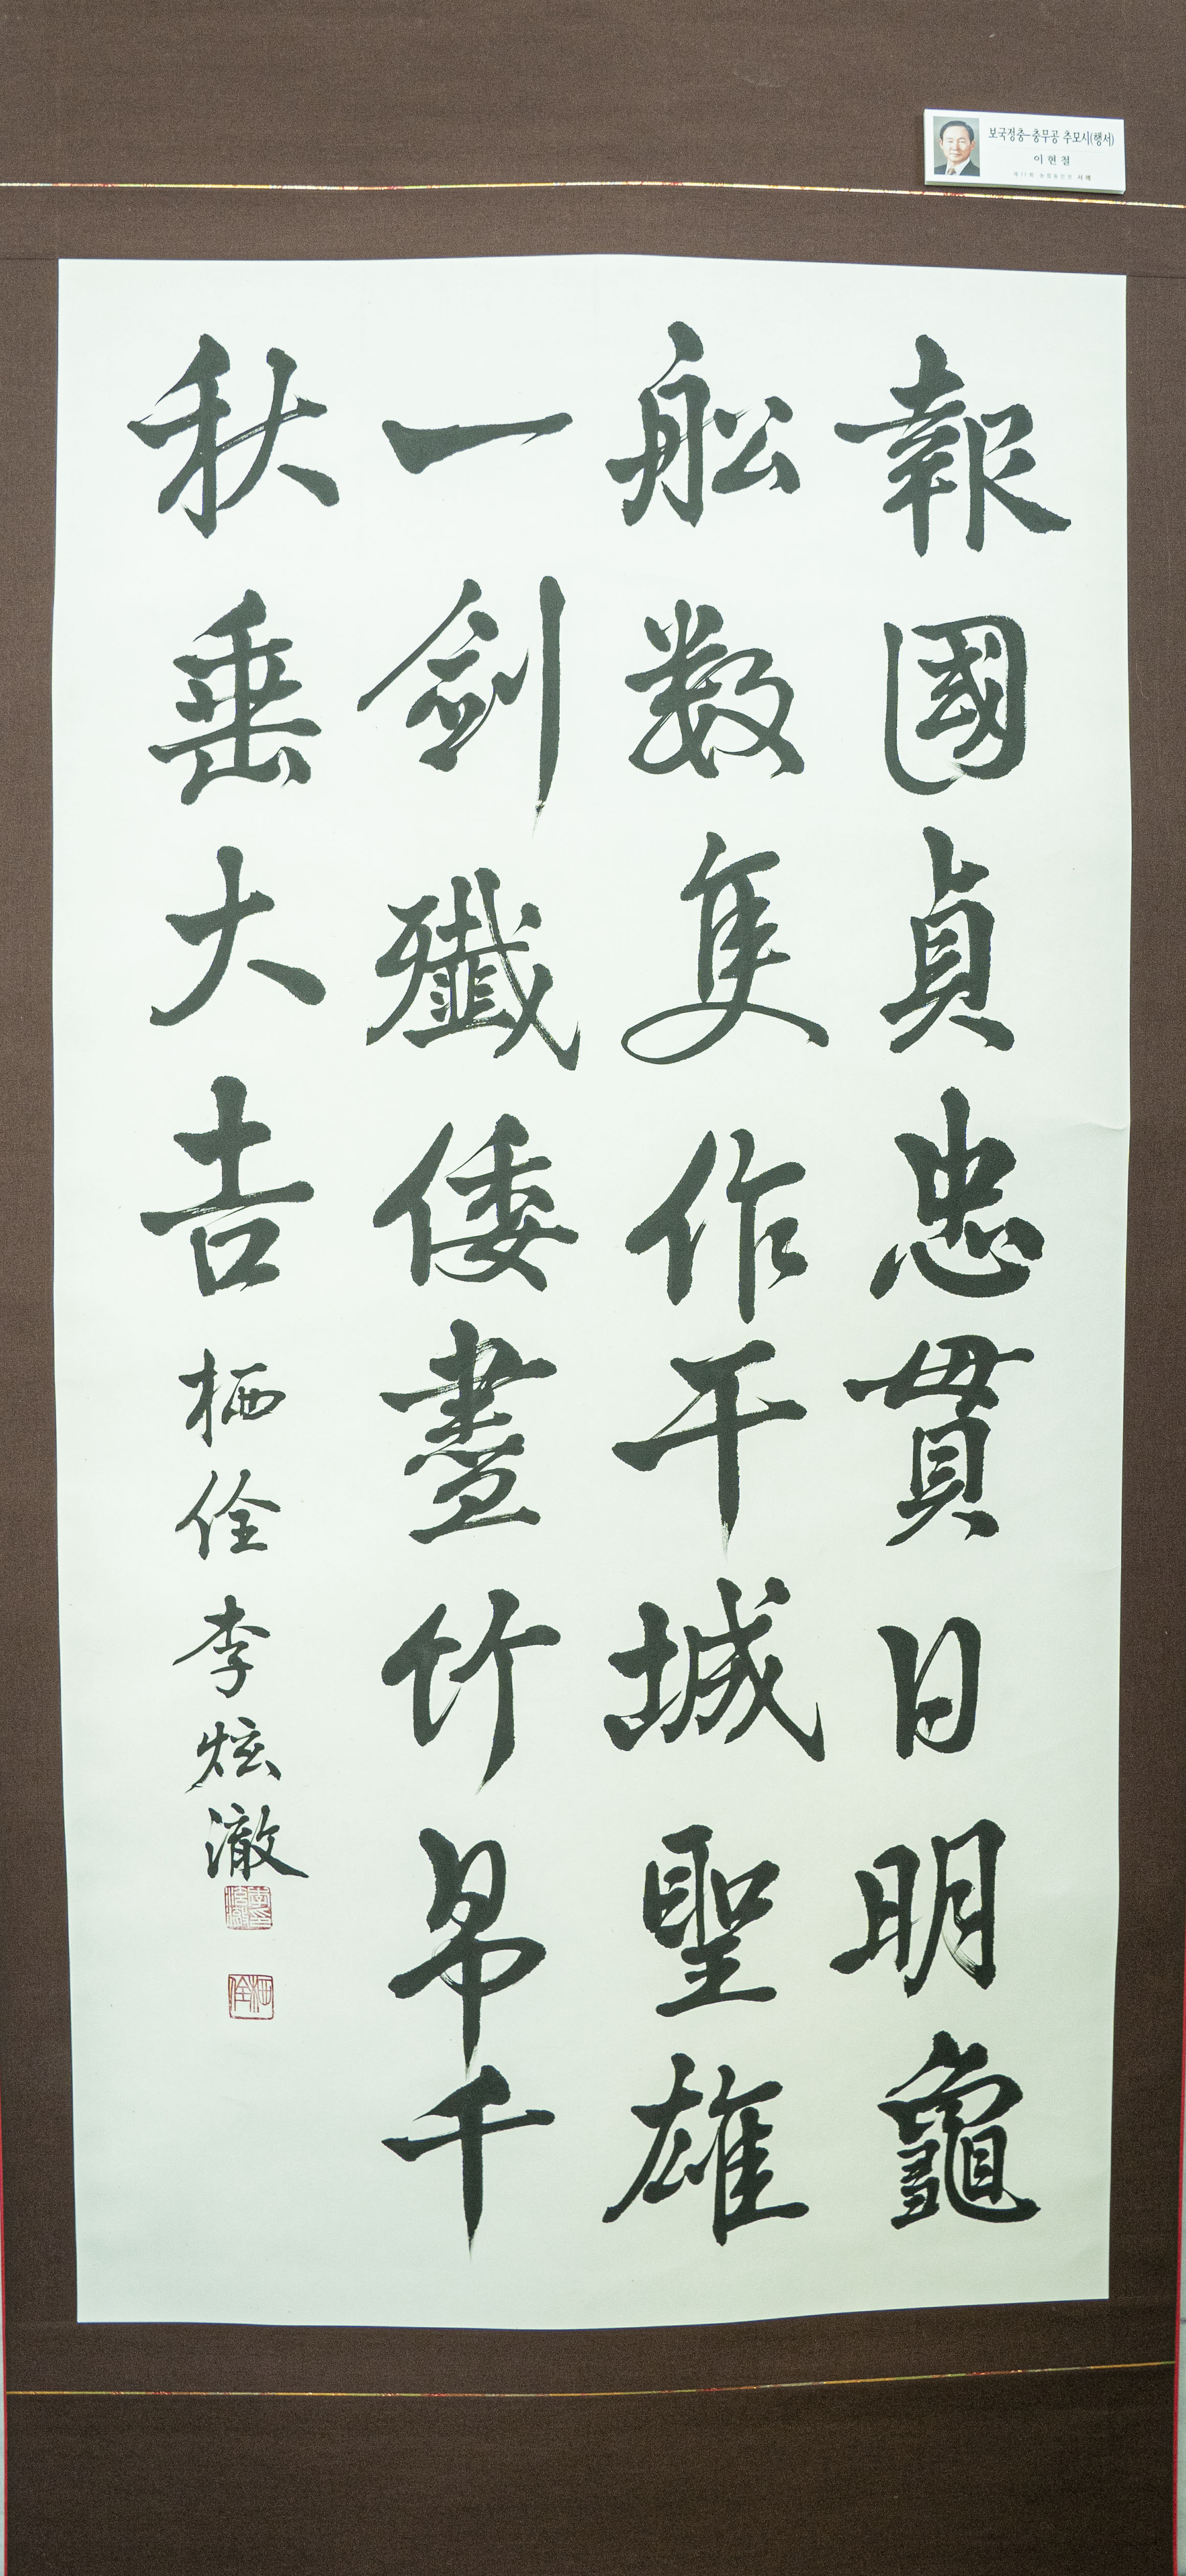 보국정충-충무공 추모시(행서)
이현철
報國貞忠貫日明龜
舩数隻作干城聖雄
一劍殲倭盡竹帛千
秋垂大吉
栖佺 李炫澈